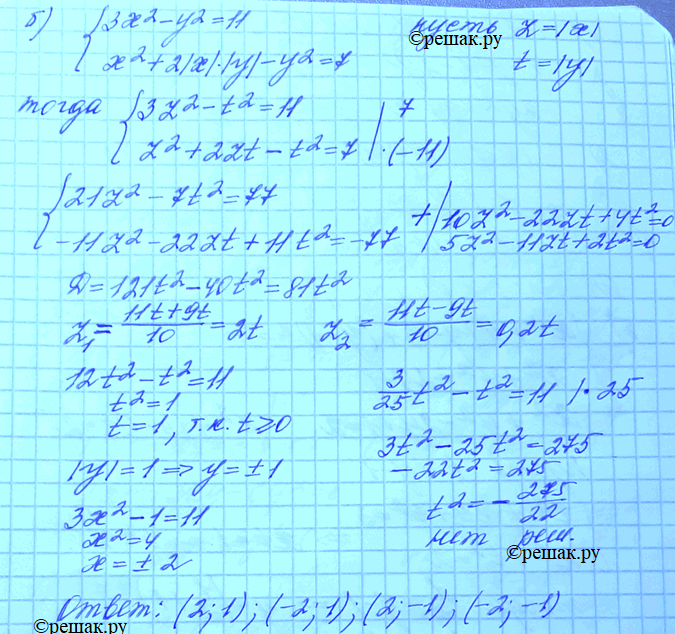 б) { 3x² - y² = 11
x² + 2|x|·|y| - y² = 7
пусть z = |x|
t = |y|
©решак.ру
тогда { 3z² - t² = 11 | 7
z² + 2zt - t² = 7 | ·(-11)
{ 21z² - 7t² = 77
-11z² - 22zt + 11t² = -77
+ | 10z² - 22zt + 4t² = 0
5z² - 11zt + 2t² = 0
D = 121t² - 40t² = 81t²
z₁ = (11t + 9t)/10 = 2t
z₂ = (11t - 9t)/10 = 0,2t
12t² - t² = 11
t² = 1
t = 1, т.к. t ≥ 0
|y| = 1 ⇒ y = ±1
3x² - 1 = 11
x² = 4
x = ±2
3/25 t² - t² = 11 | · 25
3t² - 25t² = 275
-22t² = 275
t² = - 275/22
нет реш.
©решак.ру
Ответ: (2; 1); (-2; 1); (2; -1); (-2; -1)
©решак.ру